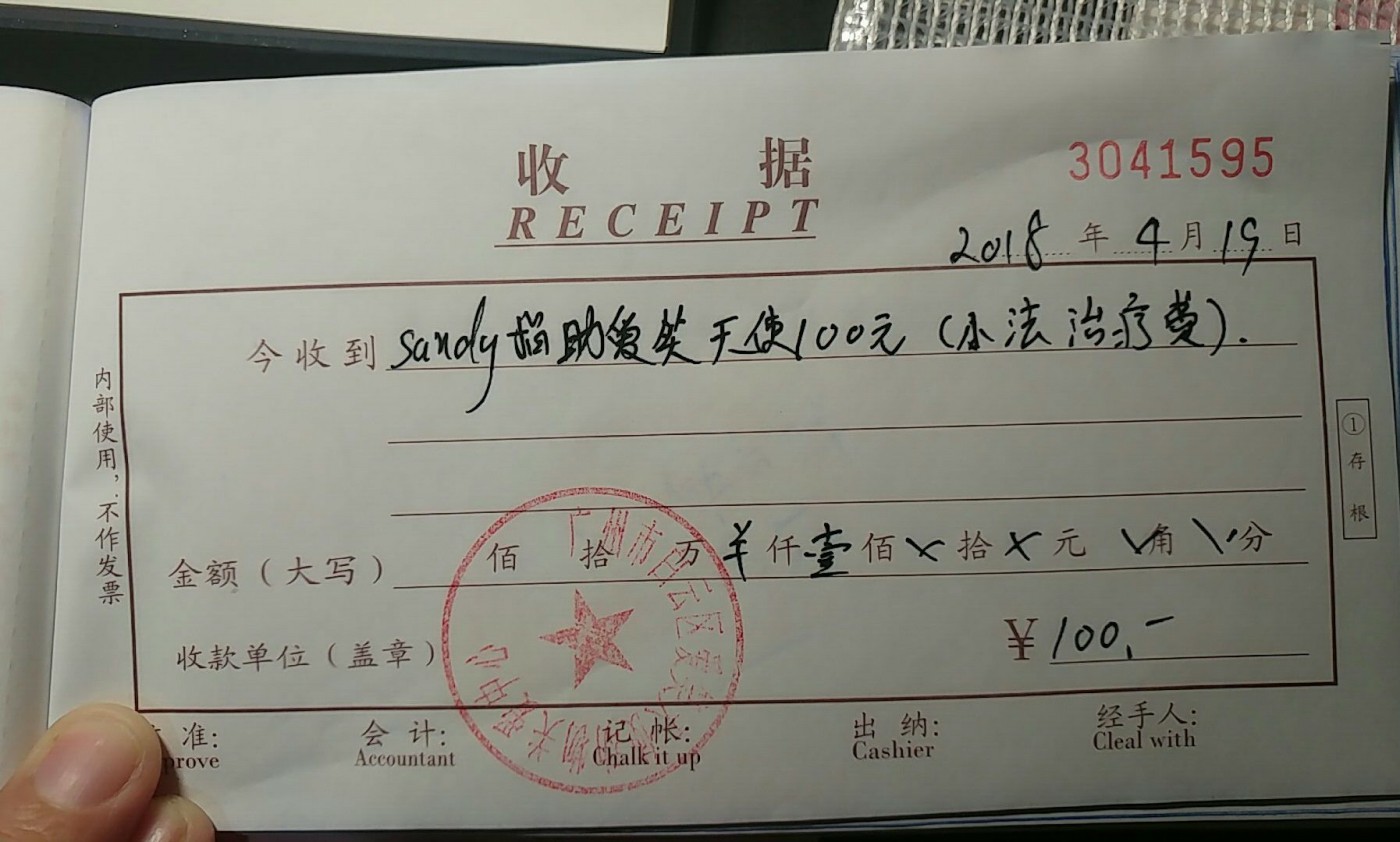 收 据
RECEIPT
3041595
2018 年 4 月 19 日
今收到 Sandy捐助爱笑天使100元(小法治疗费).
内部使用,不作发票
①存根
金额(大写) 佰 拾 万 ¥ 仟 壹 佰 × 拾 × 元 \ 角 \ 分
收款单位(盖章)
广州市白云区
中心
¥ 100,-
准: 会 计: 记 帐: 出 纳: 经手人:
prove Accountant Chalk it up Cashier Cleal with